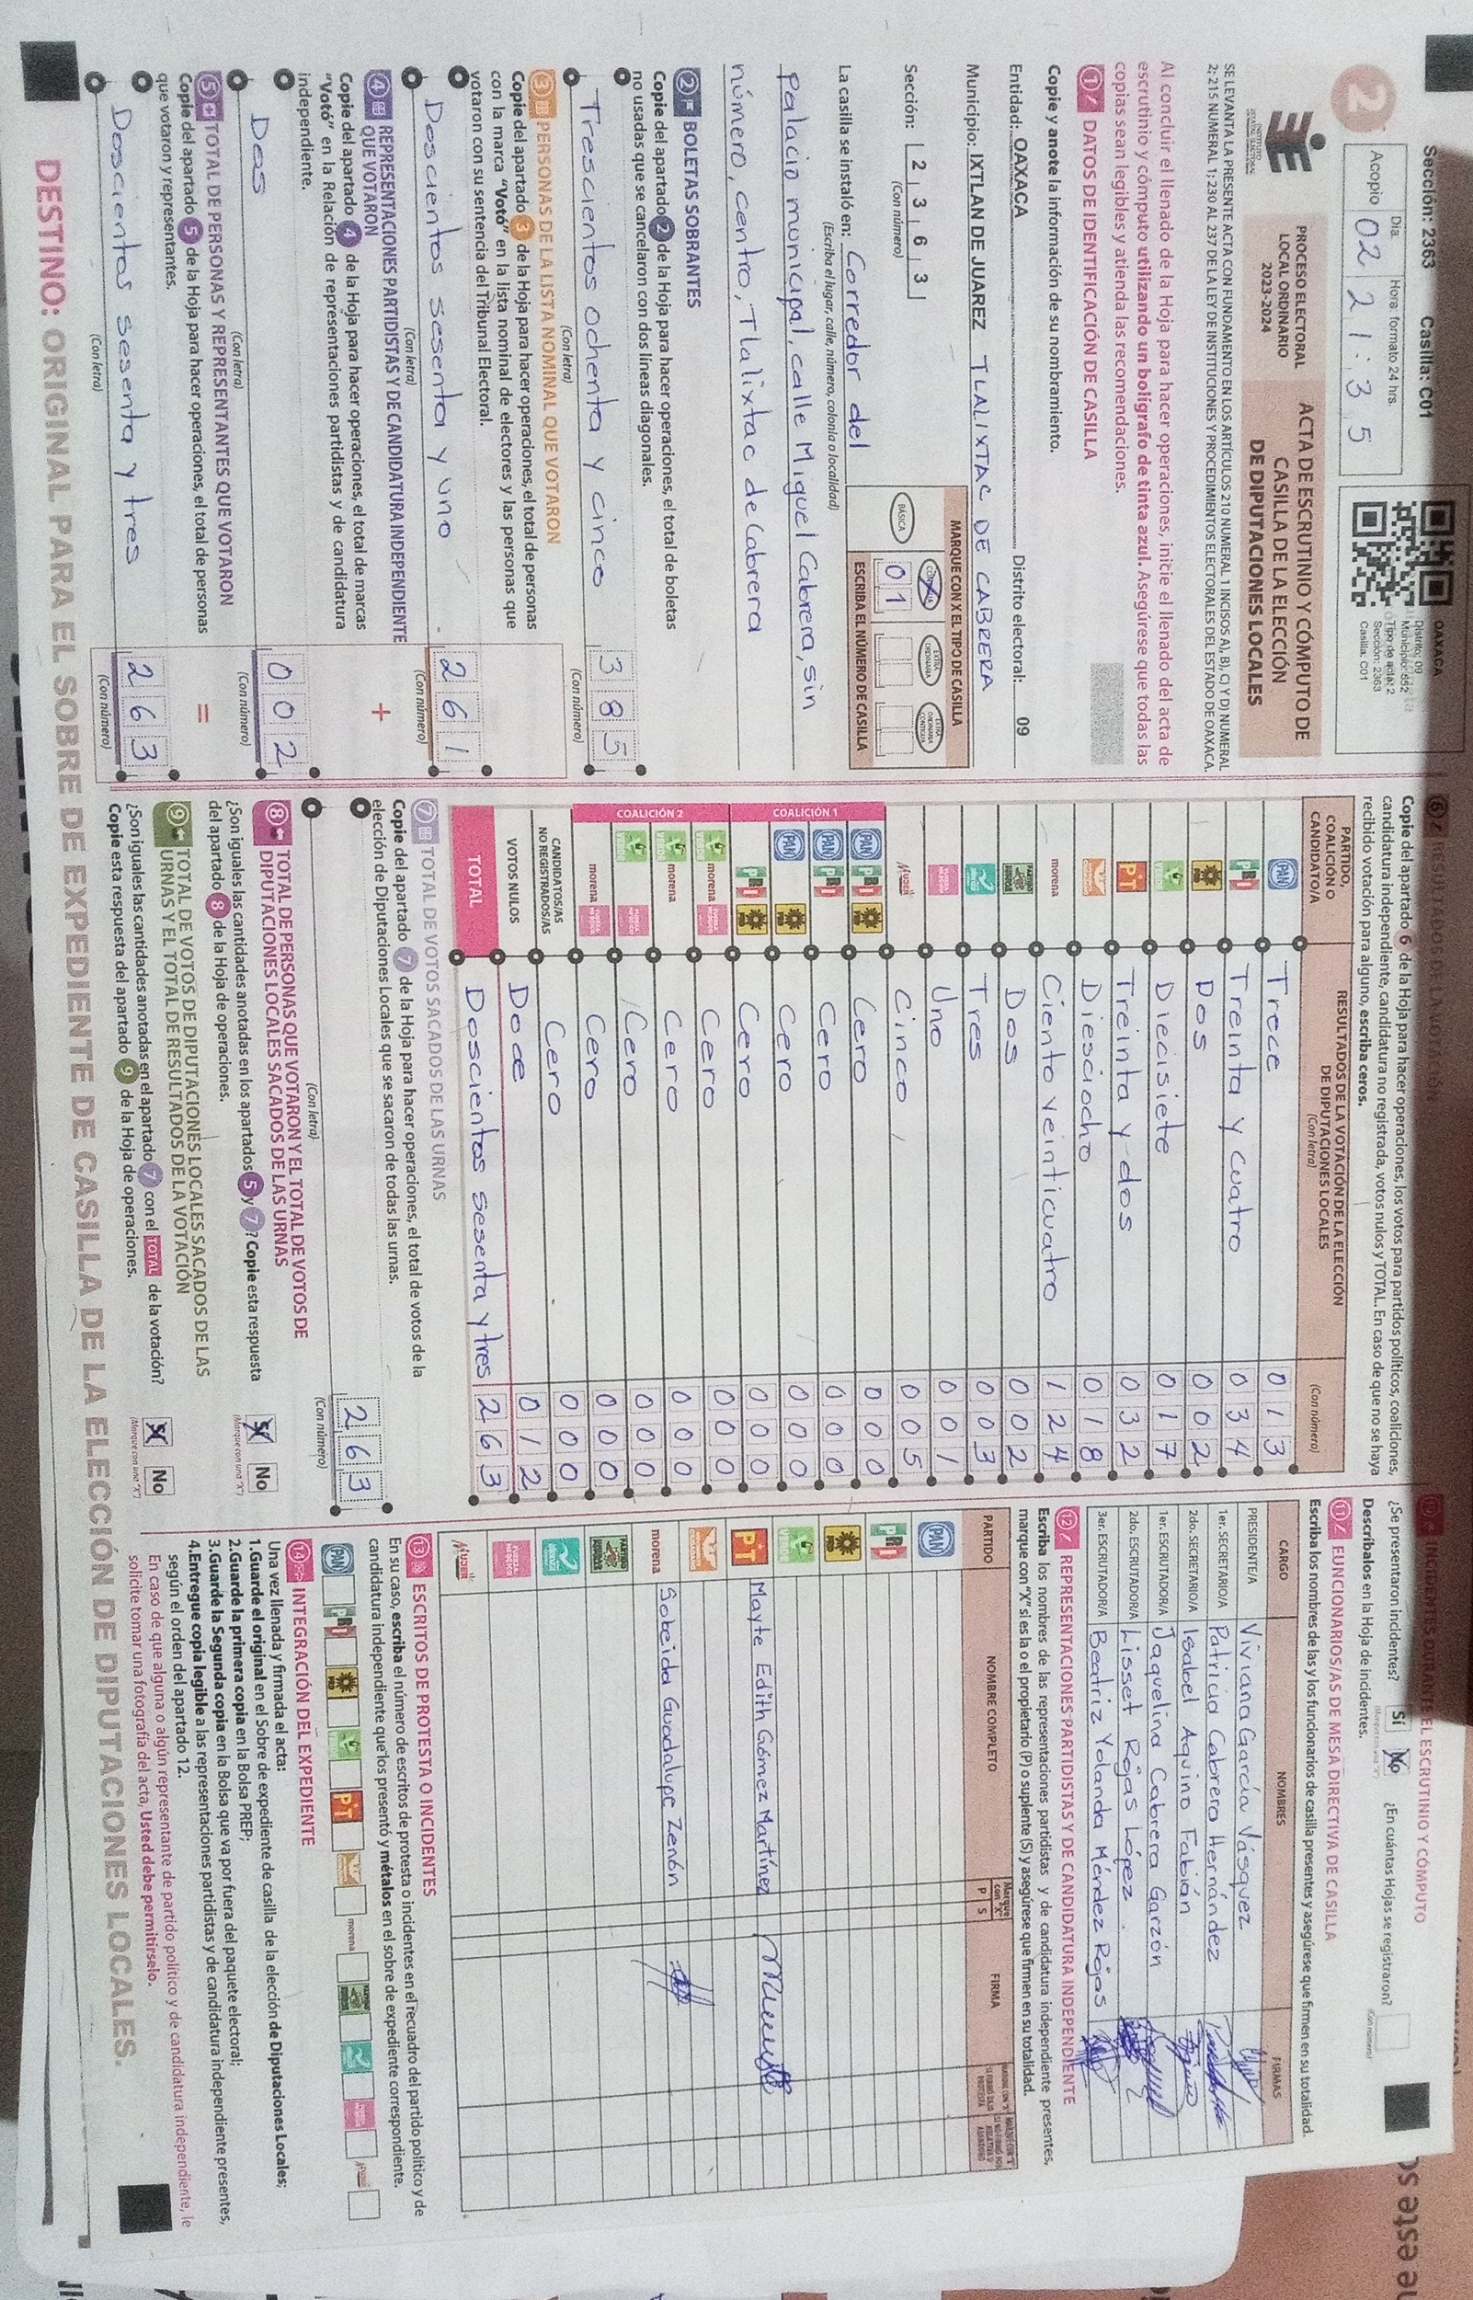 Sección: 2363 Casilla: C01
2
Acopio
Día: 02
Hora: formato 24 hrs. 21:35
OAXACA
Distrito: 09
Tipo de acta: 2
Sección: 2363
Casilla: C01
PROCESO ELECTORAL
LOCAL ORDINARIO
2023-2024
ACTA DE ESCRUTINIO Y CÓMPUTO DE
CASILLA DE LA ELECCIÓN
DE DIPUTACIONES LOCALES
SE LEVANTA LA PRESENTE ACTA CON FUNDAMENTO EN LOS ARTÍCULOS 210 NUMERAL 1 INCISOS A), B), C) Y D) NUMERAL
2; 215 NUMERAL 1; 230 AL 237 DE LA LEY DE INSTITUCIONES Y PROCEDIMIENTOS ELECTORALES DEL ESTADO DE OAXACA.
Al concluir el llenado de la Hoja para hacer operaciones, inicie el llenado del acta de
escrutinio y cómputo utilizando un bolígrafo de tinta azul. Asegúrese que todas las
copias sean legibles y atienda las recomendaciones.
1 DATOS DE IDENTIFICACIÓN DE CASILLA
Copie y anote la información de su nombramiento.
Entidad: OAXACA Distrito electoral: 09
Municipio: IXTLAN DE JUAREZ TLALIXTAC DE CABRERA
Sección: 2 3 6 3
(Con número)
MARQUE CON X EL TIPO DE CASILLA
BÁSICA
0 1
ESCRIBA EL NÚMERO DE CASILLA
La casilla se instaló en: Corredor del
(Escriba el lugar, calle, número, colonia o localidad)
Palacio municipal, calle Miguel Cabrera, sin
número, centro, Tlalixtac de Cabrera
2 BOLETAS SOBRANTES
Copie del apartado 2 de la Hoja para hacer operaciones, el total de boletas
no usadas que se cancelaron con dos líneas diagonales.
Trescientos ochenta y cinco 3 8 5
(Con letra) (Con número)
3 PERSONAS DE LA LISTA NOMINAL QUE VOTARON
Copie del apartado 3 de la Hoja para hacer operaciones, el total de personas
con la marca "Votó" en la lista nominal de electores y las personas que
votaron con su sentencia del Tribunal Electoral.
Doscientos sesenta y uno 2 6 1
(Con letra) (Con número)
4 REPRESENTACIONES PARTIDISTAS Y DE CANDIDATURA INDEPENDIENTE
QUE VOTARON
+
Copie del apartado 4 de la Hoja para hacer operaciones, el total de marcas
"Votó" en la Relación de representaciones partidistas y de candidatura
independiente.
Dos 0 0 2
(Con letra) (Con número)
5 TOTAL DE PERSONAS Y REPRESENTANTES QUE VOTARON
=
Copie del apartado 5 de la Hoja para hacer operaciones, el total de personas
que votaron y representantes.
Doscientos sesenta y tres 2 6 3
(Con letra) (Con número)
6 RESULTADOS DE LA VOTACIÓN
Copie del apartado 6 de la Hoja para hacer operaciones, los votos para partidos políticos, coaliciones,
candidatura independiente, candidatura no registrada, votos nulos y TOTAL. En caso de que no se haya
recibido votación para alguno, escriba ceros.
PARTIDO,
COALICIÓN O
CANDIDATO/A
RESULTADOS DE LA VOTACIÓN DE LA ELECCIÓN
DE DIPUTACIONES LOCALES
(Con letra) (Con número)
PAN Trece 0 1 3
PRI Treinta y cuatro 0 3 4
PRD Dos 0 0 2
VERDE Diecisiete 0 1 7
PT Treinta y dos 0 3 2
Diesciocho 0 1 8
morena Ciento veinticuatro 1 2 4
Dos 0 0 2
Tres 0 0 3
Uno 0 0 1
Mujer Cinco 0 0 5
COALICIÓN 1
PAN PRI PRD Cero 0 0 0
PAN PRI Cero 0 0 0
PAN PRD Cero 0 0 0
PRI PRD Cero 0 0 0
COALICIÓN 2
VERDE morena Cero 0 0 0
VERDE morena Cero 0 0 0
VERDE Cero 0 0 0
morena Cero 0 0 0
CANDIDATOS/AS
NO REGISTRADOS/AS Cero 0 0 0
VOTOS NULOS Doce 0 1 2
TOTAL Doscientos sesenta y tres 2 6 3
7 TOTAL DE VOTOS SACADOS DE LAS URNAS
Copie del apartado 7 de la Hoja para hacer operaciones, el total de votos de la
elección de Diputaciones Locales que se sacaron de todas las urnas.
2 6 3
(Con letra) (Con número)
8 TOTAL DE PERSONAS QUE VOTARON Y EL TOTAL DE VOTOS DE
DIPUTACIONES LOCALES SACADOS DE LAS URNAS
¿Son iguales las cantidades anotadas en los apartados 5 y 7? Copie esta respuesta
del apartado 8 de la Hoja de operaciones.
Sí No
(Marque con una "X")
9 TOTAL DE VOTOS DE DIPUTACIONES LOCALES SACADOS DE LAS
URNAS Y EL TOTAL DE RESULTADOS DE LA VOTACIÓN
¿Son iguales las cantidades anotadas en el apartado 7 con el TOTAL de la votación?
Copie esta respuesta del apartado 9 de la Hoja de operaciones.
Sí No
(Marque con una "X")
10 INCIDENTES DURANTE EL ESCRUTINIO Y CÓMPUTO
¿Se presentaron incidentes? Sí No ¿En cuántas Hojas se registraron?
(Con número)
Descríbalos en la Hoja de incidentes.
11 FUNCIONARIOS/AS DE MESA DIRECTIVA DE CASILLA
Escriba los nombres de las y los funcionarios de casilla presentes y asegúrese que firmen en su totalidad.
CARGO NOMBRES FIRMAS
PRESIDENTE/A Viviana García Vásquez
1er. SECRETARIO/A Patricia Cabrera Hernández
2do. SECRETARIO/A Isabel Aquino Fabián
1er. ESCRUTADOR/A Jaquelina Cabrera Garzón
2do. ESCRUTADOR/A Lisset Rojas López
3er. ESCRUTADOR/A Beatriz Yolanda Méndez Rojas
12 REPRESENTACIONES PARTIDISTAS Y DE CANDIDATURA INDEPENDIENTE
Escriba los nombres de las representaciones partidistas y de candidatura independiente presentes,
marque con "X" si es la o el propietario (P) o suplente (S) y asegúrese que firmen en su totalidad.
PARTIDO NOMBRE COMPLETO Marque con "X" P S FIRMA
PAN
PRI
PRD
VERDE
PT Mayte Edith Gómez Martínez
morena Sobeida Guadalupe Zenón
Mujer
13 ESCRITOS DE PROTESTA O INCIDENTES
En su caso, escriba el número de escritos de protesta o incidentes en el recuadro del partido político y de
candidatura independiente que los presentó y métalos en el sobre de expediente correspondiente.
PAN PRI PRD VERDE PT morena Mujer
14 INTEGRACIÓN DEL EXPEDIENTE
Una vez llenada y firmada el acta:
1.Guarde el original en el Sobre de expediente de casilla de la elección de Diputaciones Locales;
2.Guarde la primera copia en la Bolsa PREP;
3.Guarde la Segunda copia en la Bolsa que va por fuera del paquete electoral;
4.Entregue copia legible a las representaciones partidistas y de candidatura independiente presentes,
según el orden del apartado 12.
En caso de que alguna o algún representante de partido político y de candidatura independiente, le
solicite tomar una fotografía del acta, Usted debe permitírselo.
DESTINO: ORIGINAL PARA EL SOBRE DE EXPEDIENTE DE CASILLA DE LA ELECCIÓN DE DIPUTACIONES LOCALES.